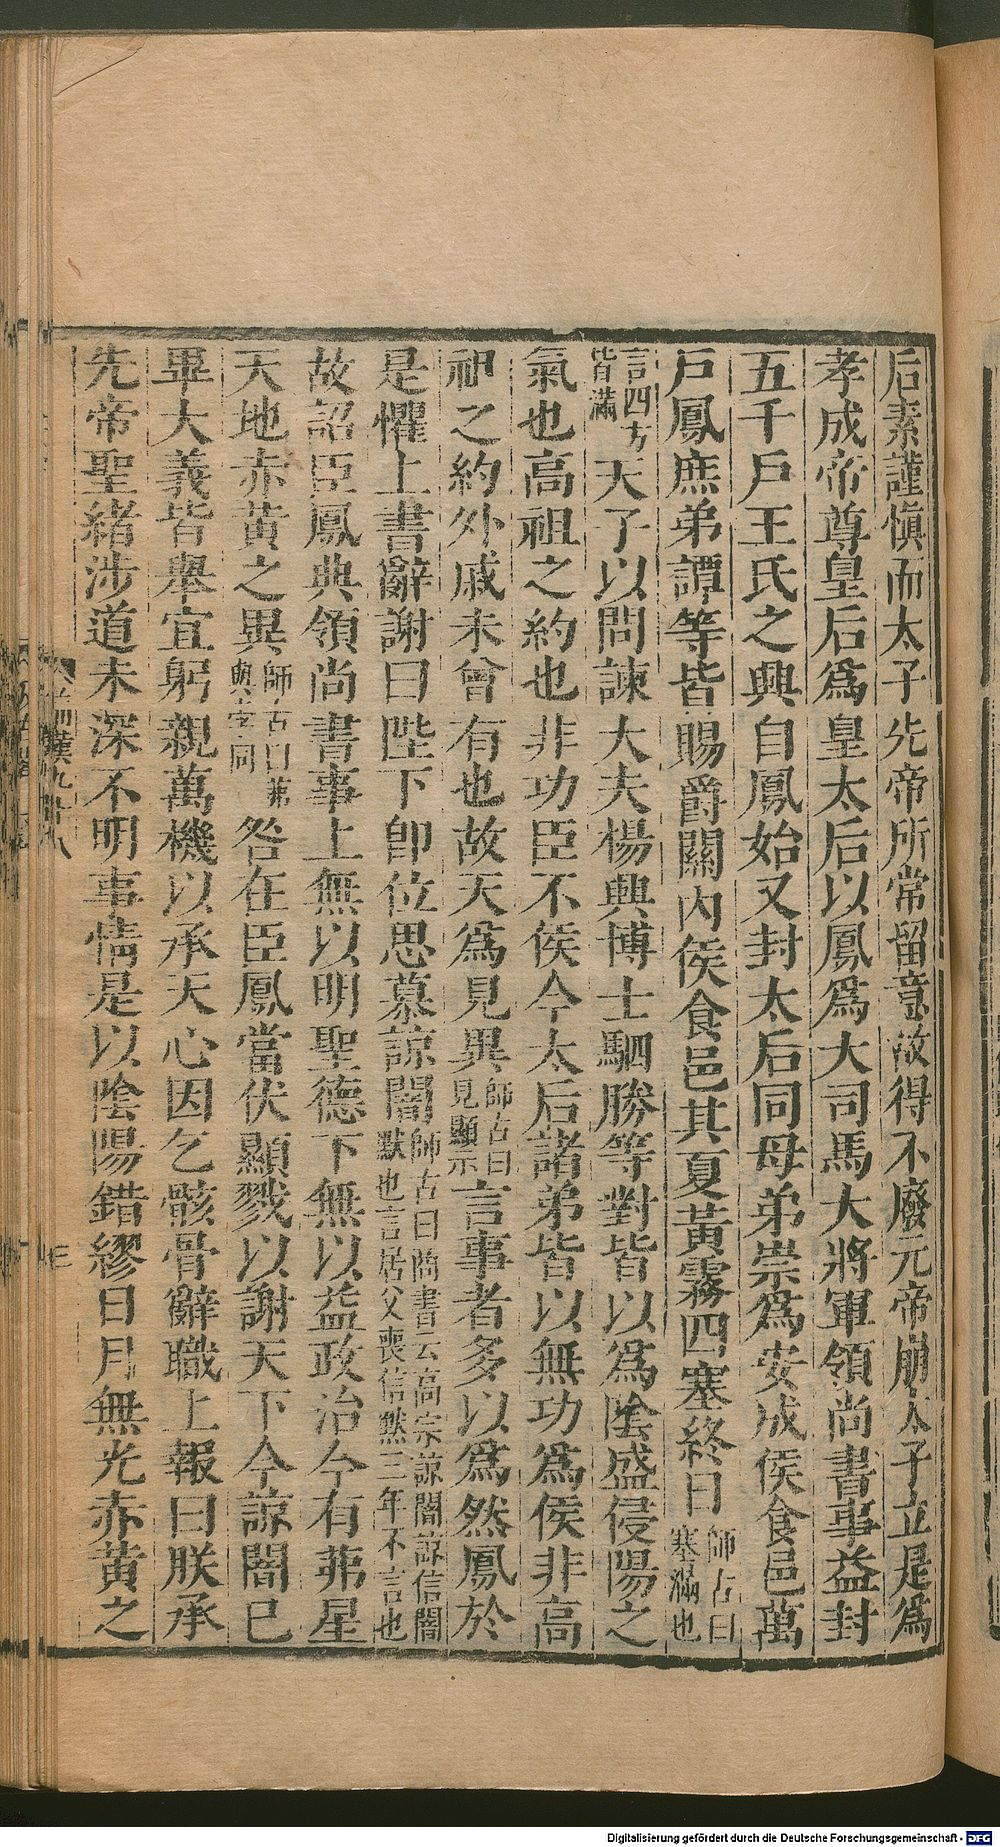 后素謹慎而太子先帝所常留意故得不廢元帝崩太子立是爲
孝成帝尊皇后爲皇太后以鳳爲大司馬大將軍領尚書事益封
五千戶王氏之興自鳳始又封太后同母弟崇爲安成侯食邑萬
戶鳳庶弟譚等皆賜爵關內侯食邑其夏黃霧四塞終日師古曰塞滿也
言四方皆滿天子以問諫大夫楊興博士駟勝等對皆以爲陰盛侵陽之
氣也高祖之約也非功臣不侯今太后諸弟皆以無功爲侯非高
祖之約外戚未曾有也故天爲見異師古曰見顯示言事者多以爲然鳳於
是懼上書辭謝曰陛下卽位思慕諒闇師古曰尚書云高宗諒闇諒信闇默也言居父喪信默三年不言也
故詔臣鳳典領尚書事上無以明聖德下無以益政治今有茀星
天地赤黃之異師古曰茀與孛同咎在臣鳳當伏顯戮以謝天下今諒闇已
畢大義皆舉宜躬親萬機以承天心因乞骸骨辭職上報曰朕承
先帝聖緒涉道未深不明事情是以陰陽錯繆日月無光赤黃之
前漢九十八
Digitalisierung gefördert durch die Deutsche Forschungsgemeinschaft - DFG